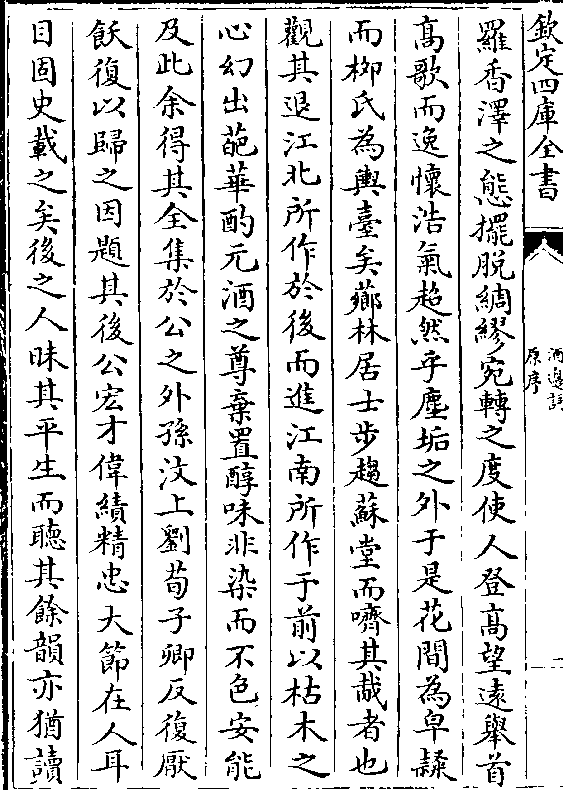 欽定四庫全書
酒邊詞
原序
二
羅香澤之態擺脫綢繆宛轉之度使人登髙望逺舉首
髙歌而逸懷浩氣超然乎塵垢之外于是花間為皁𨽻
而柳氏為輿臺矣薌林居士步趨蘇堂而嚌其胾者也
觀其退江北所作於後而進江南所作于前以枯木之
心幻出葩華酌元酒之尊棄置醇味非染而不色安能
及此余得其全集於公之外孫汶上劉荀子卿反復厭
飫復以歸之因題其後公宏才偉績精忠大節在人耳
目固史載之矣後之人昧其平生而聽其餘韻亦猶讀